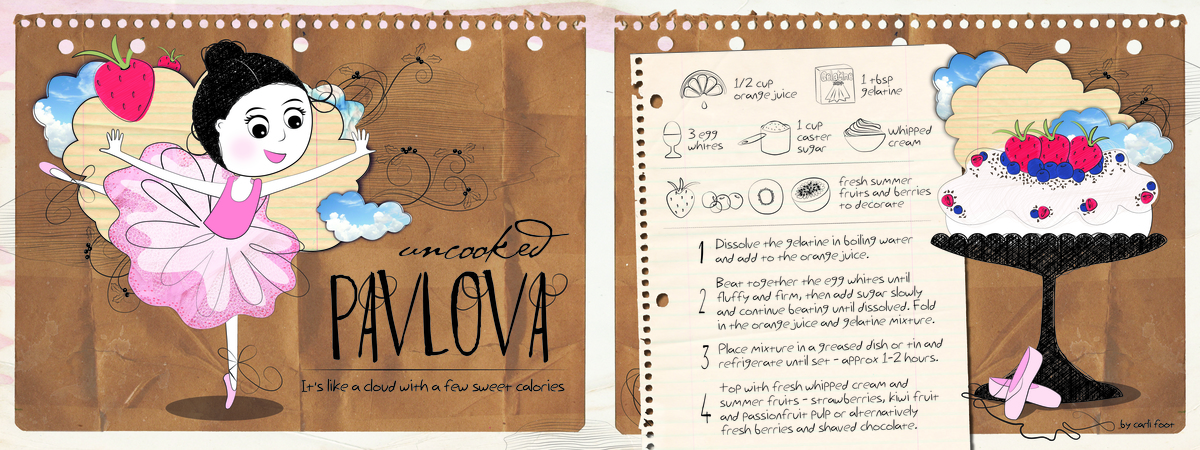 uncooked
PAVLOVA
It's like a cloud with a few sweet calories
1/2 cup
orange juice
Gelatine
1 tbsp
gelatine
3 egg
whites
1 cup
caster
sugar
whipped
cream
fresh summer
fruits and berries
to decorate
1 Dissolve the gelatine in boiling water
and add to the orange juice.
2 Beat together the egg whites until
fluffy and firm, then add sugar slowly
and continue beating until dissolved. Fold
in the orange juice and gelatine mixture.
3 Place mixture in a greased dish or tin and
refrigerate until set - approx 1-2 hours.
4 top with fresh whipped cream and
summer fruits - strawberries, kiwi fruit
and passionfruit pulp or alternatively
fresh berries and shaved chocolate.
by carli foot